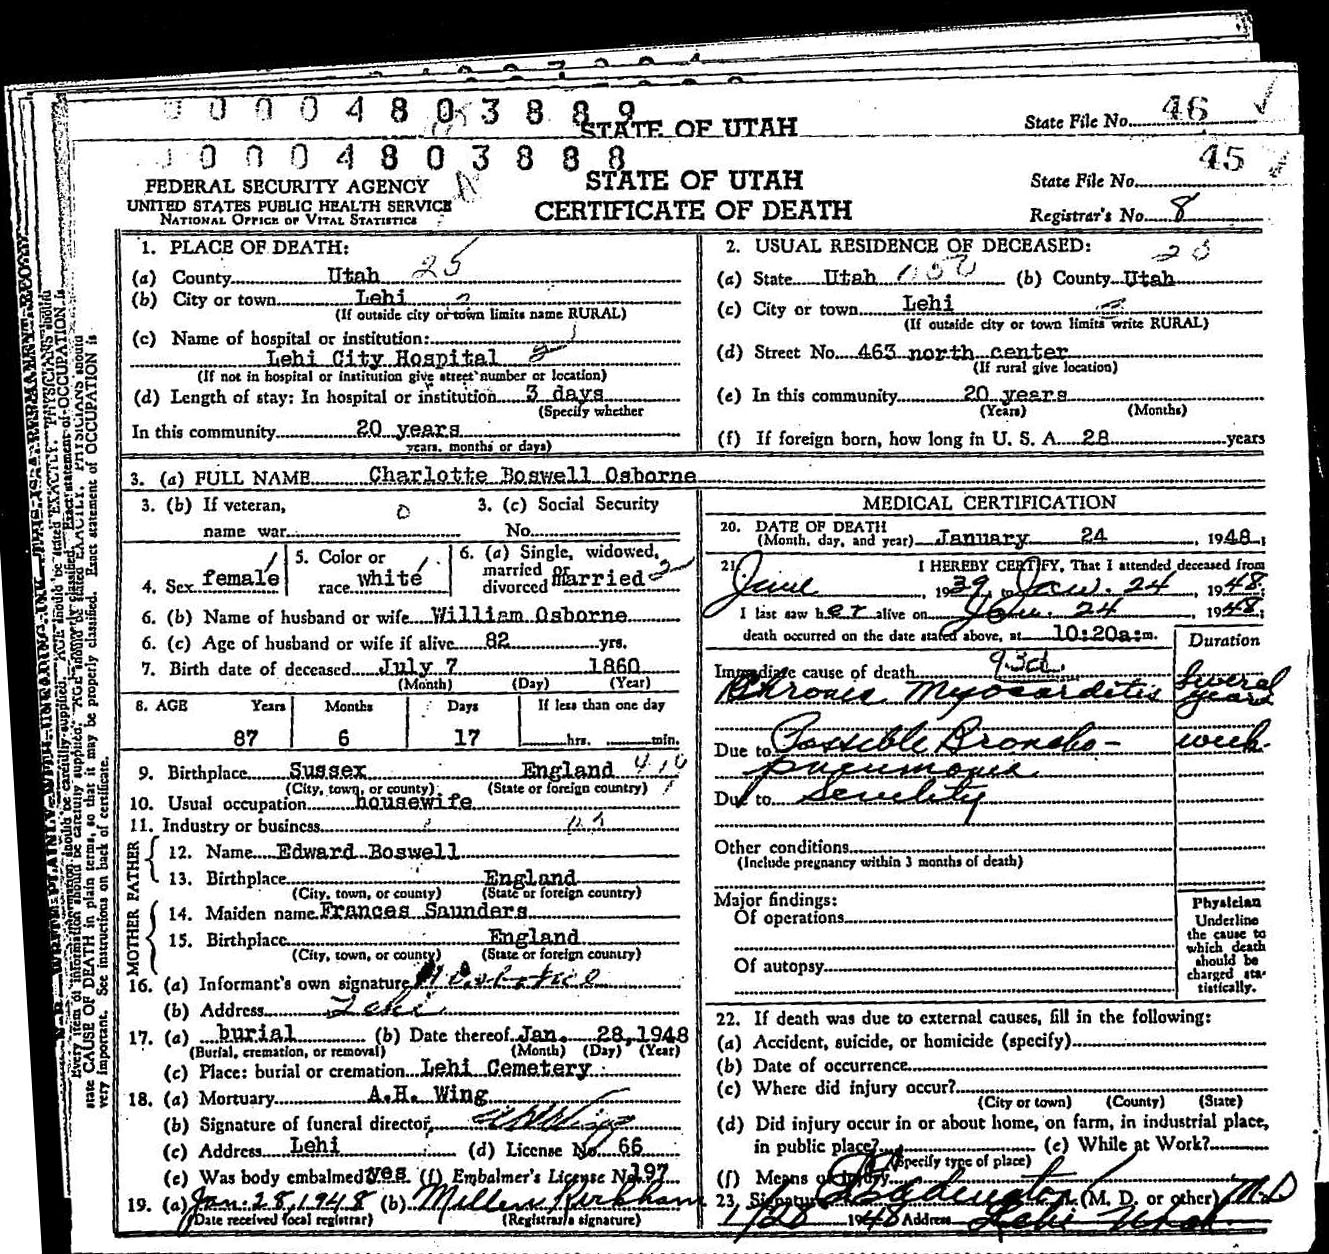 0 0 0 0 4 8 0 3 8 8 9
STATE OF UTAH
State File No. 46
0 0 0 4 8 0 3 8 8 8
45
FEDERAL SECURITY AGENCY
UNITED STATES PUBLIC HEALTH SERVICE
NATIONAL OFFICE OF VITAL STATISTICS
STATE OF UTAH
CERTIFICATE OF DEATH
State File No.
Registrar's No. 8
1. PLACE OF DEATH:
(a) County Utah 25
(b) City or town Lehi
(If outside city or town limits name RURAL)
(c) Name of hospital or institution:
Lehi City Hospital 2
(If not in hospital or institution give street number or location)
(d) Length of stay: In hospital or institution 3 days
(Specify whether
In this community 20 years
years, months or days)
2. USUAL RESIDENCE OF DECEASED:
(a) State Utah (b) County Utah
(c) City or town Lehi
(If outside city or town limits write RURAL)
(d) Street No. 463 north center
(If rural give location)
(e) In this community 20 years
(Years) (Months)
(f) If foreign born, how long in U. S. A. 28 years
3. (a) FULL NAME Charlotte Boswell Osborne
3. (b) If veteran,
name war 0
3. (c) Social Security
No.
4. Sex female
5. Color or
race white
6. (a) Single, widowed,
married or
divorced married
6. (b) Name of husband or wife William Osborne
6. (c) Age of husband or wife if alive 82 yrs.
7. Birth date of deceased July 7 1860
(Month) (Day) (Year)
8. AGE Years Months Days If less than one day
87 6 17 hrs. min.
9. Birthplace Sussex England
(City, town, or county) (State or foreign country)
10. Usual occupation housewife
11. Industry or business
FATHER
12. Name Edward Boswell
13. Birthplace England
(City, town, or county) (State or foreign country)
MOTHER
14. Maiden name Frances Saunders
15. Birthplace England
(City, town, or county) (State or foreign country)
16. (a) Informant's own signature
(b) Address Lehi
17. (a) burial (b) Date thereof Jan. 28, 1948
(Burial, cremation, or removal) (Month) (Day) (Year)
(c) Place: burial or cremation Lehi Cemetery
18. (a) Mortuary A.H. Wing
(b) Signature of funeral director, AH Wing
(c) Address Lehi (d) License No. 66
(e) Was body embalmed? yes (f) Embalmer's License No. 197
19. (a) Jan. 28, 1948 (b) Kirkham
(Date received local registrar) (Registrar's signature)
MEDICAL CERTIFICATION
20. DATE OF DEATH
(Month, day, and year) January 24, 1948;
21. I HEREBY CERTIFY, That I attended deceased from
June, 1939, to Jan. 24, 1948;
I last saw her alive on Jan. 24, 1948;
death occurred on the date stated above, at 10:20a:m.
Duration
Immediate cause of death 93d
Chronic Myocarditis Several years
Due to Possible Broncho- week
pneumonia
Due to Senility
Other conditions
(Include pregnancy within 3 months of death)
Major findings:
Of operations
Of autopsy
Physician
Underline
the cause to
which death
should be
charged sta-
tistically.
22. If death was due to external causes, fill in the following:
(a) Accident, suicide, or homicide (specify)
(b) Date of occurrence
(c) Where did injury occur?
(City or town) (County) (State)
(d) Did injury occur in or about home, on farm, in industrial place,
in public place? (e) While at Work?
(Specify type of place)
(f) Means of injury
23. Signature Eddington (M. D. or other) M.D
1/28 1948 Address Lehi Utah
Every item of information should be carefully supplied. AGE should be stated EXACTLY. PHYSICIANS should
state CAUSE OF DEATH in plain terms, so that it may be properly classified. Exact statement of OCCUPATION is
very important. See instructions on back of certificate.